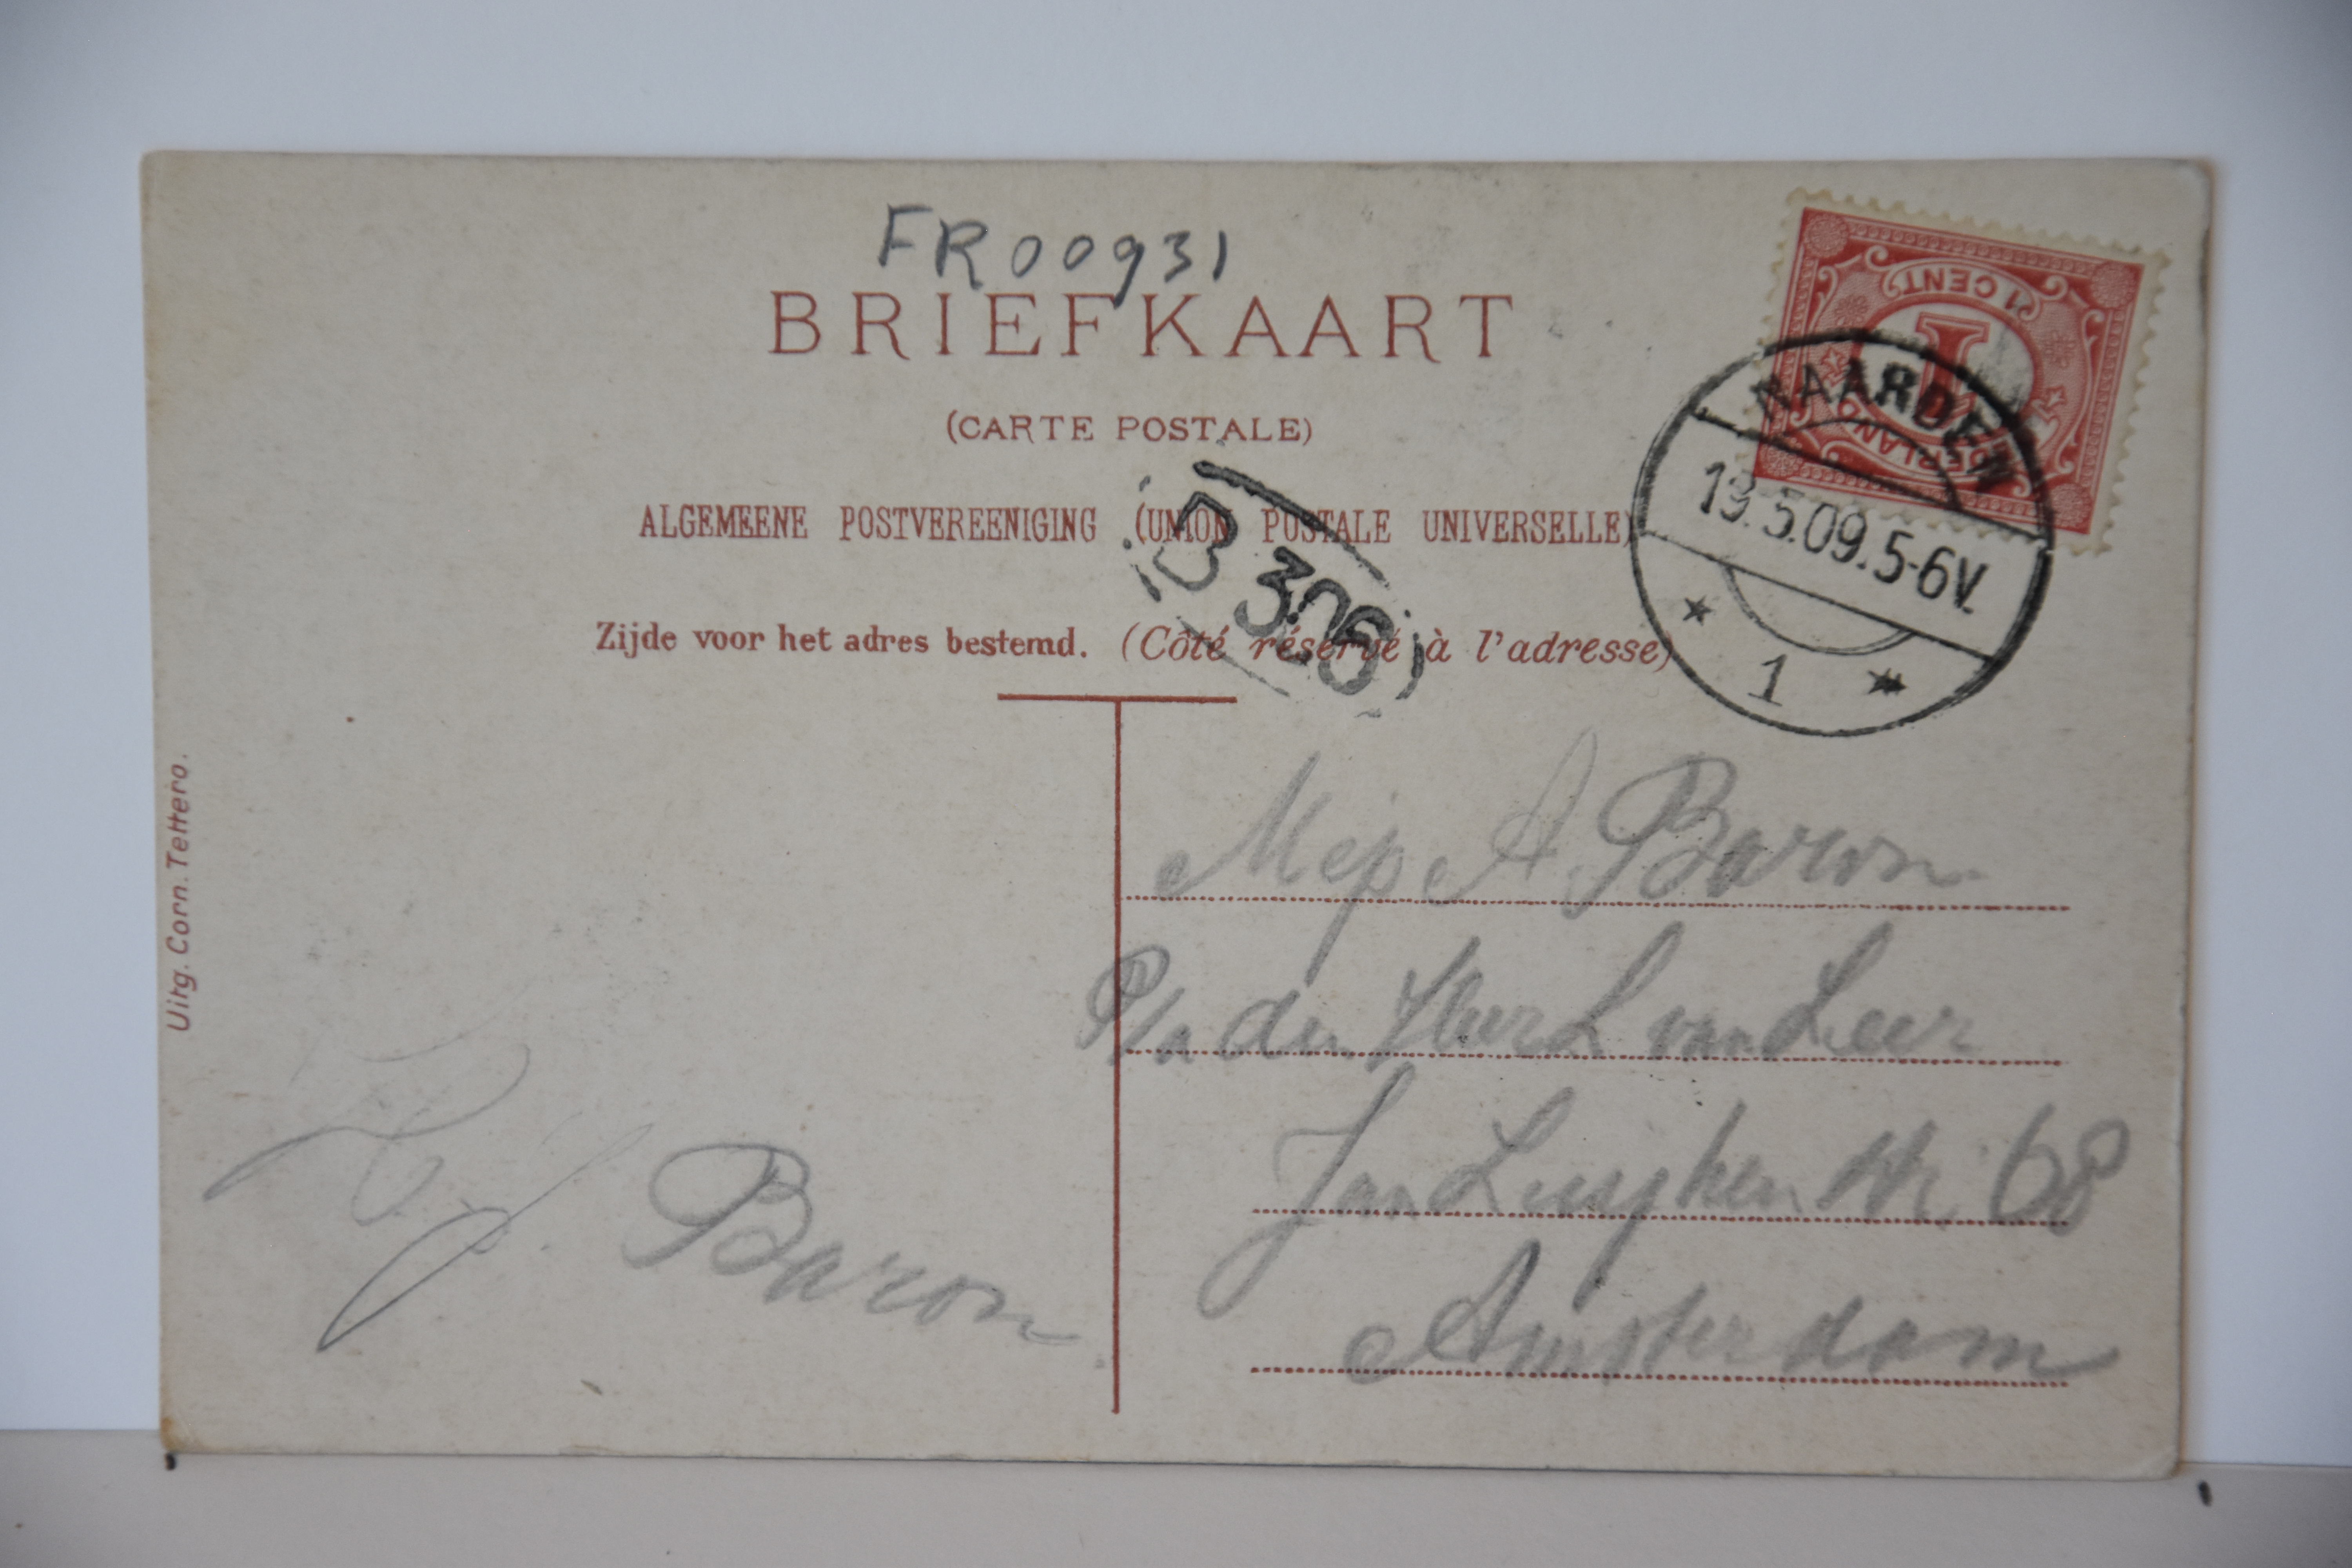 FR00931
BRIEFKAART
(CARTE POSTALE)
ALGEMEENE POSTVEREENIGING (UNION POSTALE UNIVERSELLE)
Zijde voor het adres bestemd. (Côté réservé à l'adresse)
1 CENT
1
NAARDEN
19.5.09.5-6V.
1
B 306
Uitg. Corn. Tettero.
Mej A Baron
P/a den Heer L van Leer
Jan Luyken str 68
Amsterdam
Baron